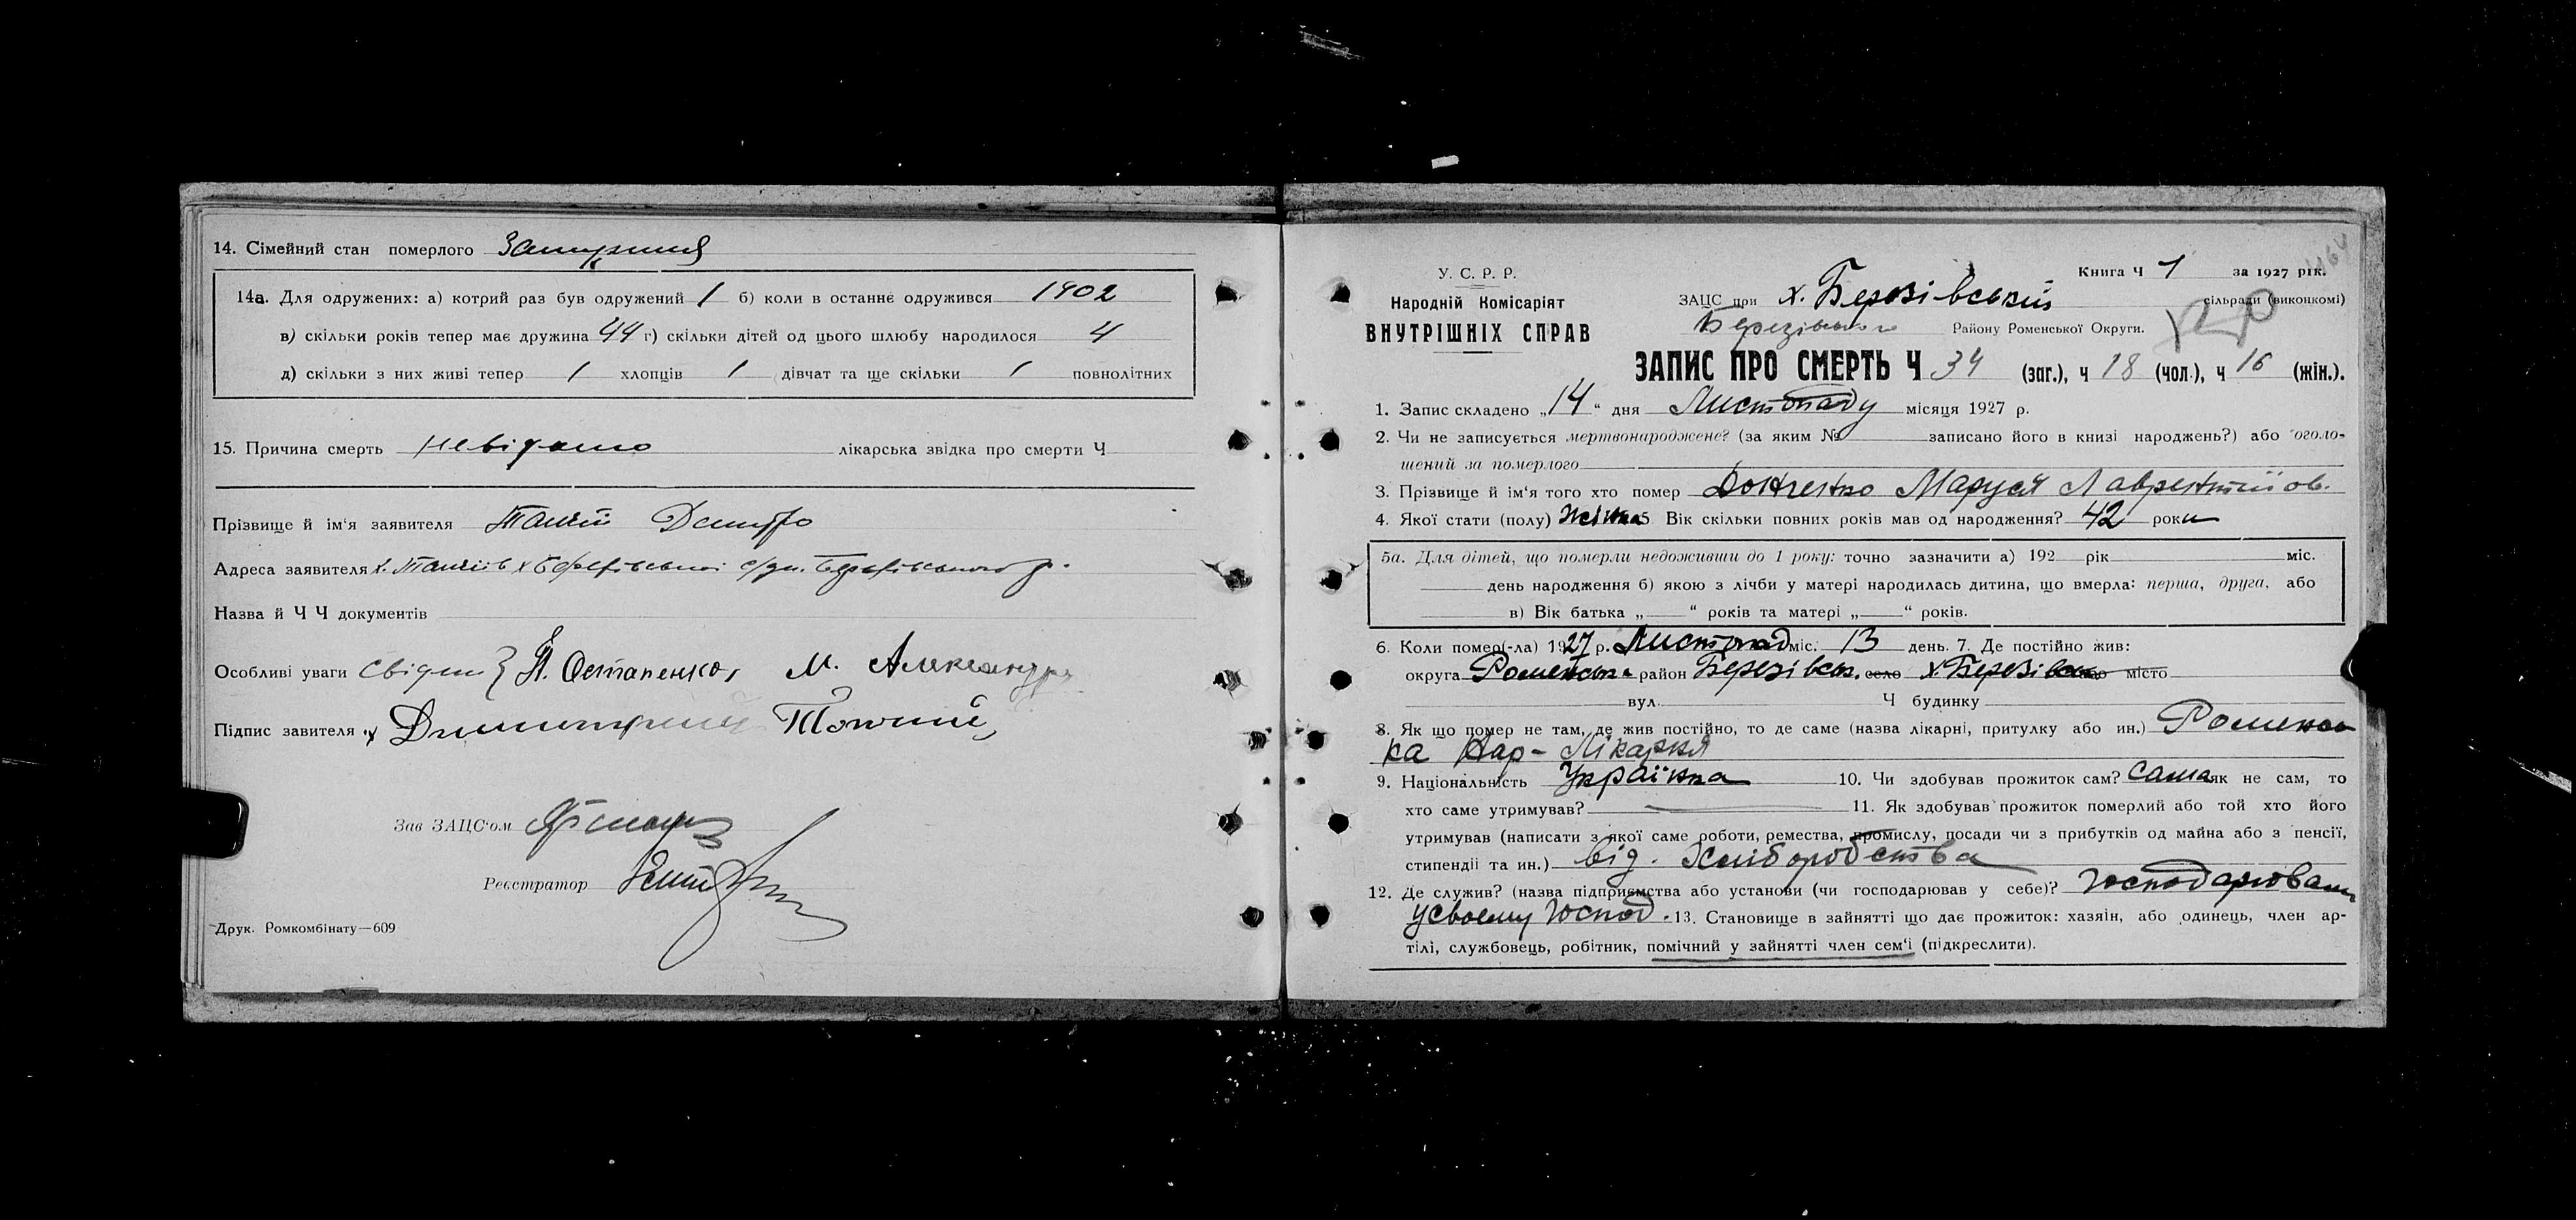 14. Сімейний стан померлого Замужния
14а. Для одружених: а) котрий раз був одружений 1 б) коли в останнє одружився 1902
в) скільки років тепер має дружина 44 г) скільки дітей од цього шлюбу народилося 4
д) скільки з них живі тепер 1 хлопців 1 дівчат та ще скільки 1 повнолітних
15. Причина смерть Невідомо лікарська звідка про смерти Ч
Прізвище й ім'я заявителя Дмитро
Адреса заявителя х.
Назва й Ч Ч документів
Особливі уваги Свідки П. Остапенко, М.
Підпис завителя
Зав ЗАЦС'ом
Реєстратор
Друк. Ромкомбінату—609
У. С. Р. Р.
Народній Комісаріят
ВНУТРІШНІХ СПРАВ
Книга Ч 1 за 1927 рік.
ЗАЦС при х. Березівський сільради (виконкомі)
Березівського Району Роменської Округи.
ЗАПИС ПРО СМЕРТЬ Ч 34 (заг.), ч 18 (чол.), ч 16 (жін.).
1. Запис складено „14“ дня Листопаду місяця 1927 р.
2. Чи не записується мертвонароджене? (за яким № записано його в книзі народжень?) або оголо-
шений за померлого
3. Прізвище й ім'я того хто помер Маруся Лаврентіїов.
4. Якої стати (полу) Жінка 5 Вік скільки повних років мав од народження? 42 роки
5а. Для дітей, що померли недоживши до 1 року: точно зазначити а) 192 рік міс.
день народження б) якою з лічби у матері народилась дитина, що вмерла: перша, друга, або
в) Вік батька „ “ років та матері „ “ років.
6. Коли помер(-ла) 1927 р. Листопад міс. 13 день. 7. Де постійно жив:
округа Роменська район Березівськ. село х. Березівка місто
вул. Ч будинку
8. Як що помер не там, де жив постійно, то де саме (назва лікарні, притулку або ин.) Роменсь
ка Нар- Лікарня
9. Національність Українка 10. Чи здобував прожиток сам? Сама як не сам, то
хто саме утримував? 11. Як здобував прожиток померлий або той хто його
утримував (написати з якої саме роботи, ремества, промислу, посади чи з прибутків од майна або з пенсії,
стипендії та ин.) від. Хліборобства
12. Де служив? (назва підприємства або установи (чи господарював у себе)? Господарювали
у своєму Господ. 13. Становище в зайнятті що дає прожиток: хазяін, або одинець, член ар-
тілі, службовець, робітник, помічний у зайнятті член сем'і (підкреслити).